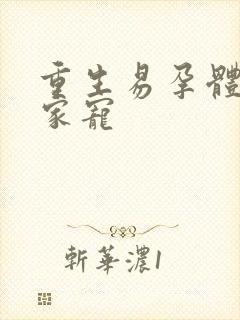 重生易孕體
家寵
斬華濃1